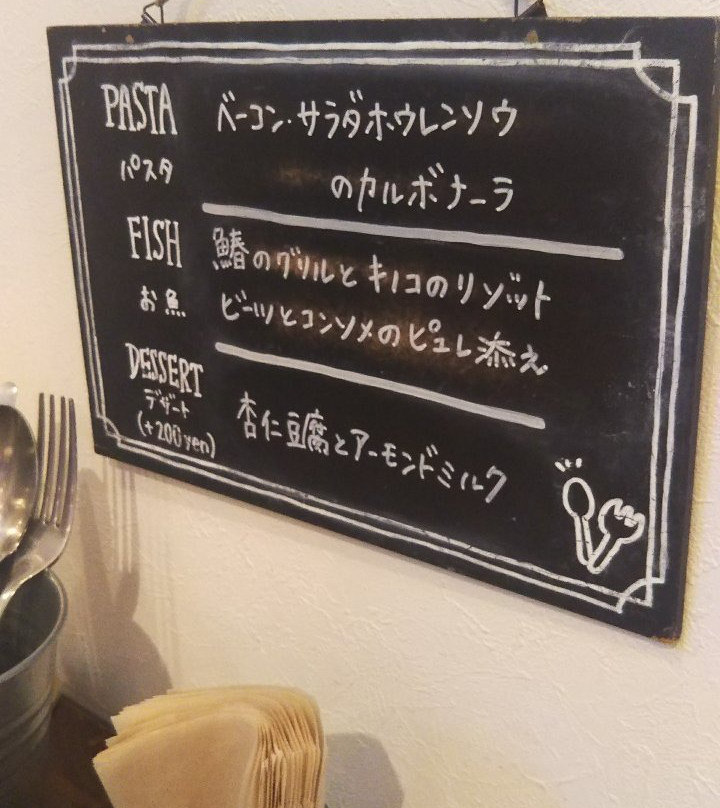 PASTA
パスタ
ベーコン・サラダホウレンソウ
のカルボナーラ
FISH
お魚
鰆のグリルとキノコのリゾット
ビーツとコンソメのピュレ添え
DESSERT
デザート
(+200yen)
杏仁豆腐とアーモンドミルク